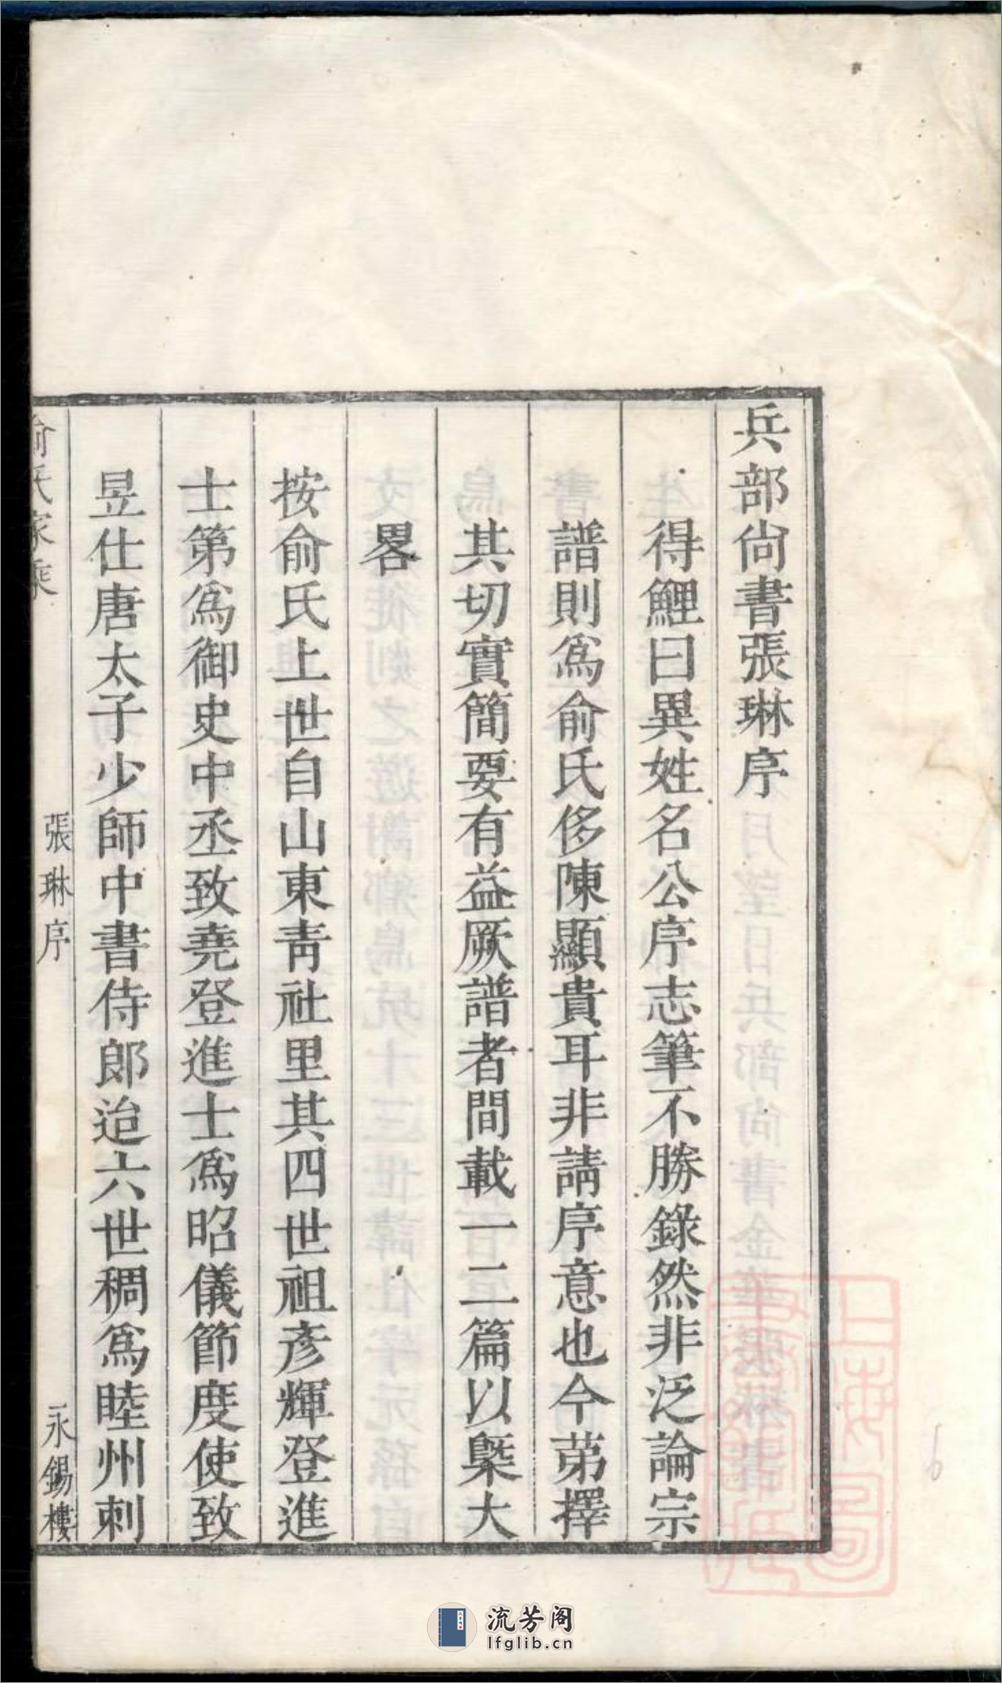 兵部尙書張琳序
得鯉曰異姓名公序志筆不勝錄然非泛論宗
譜則爲俞氏侈陳顯貴耳非請序意也今苐擇
其切實簡要有益厥譜者間載一二篇以槩大
畧
按俞氏上世自山東靑社里其四世祖彥輝登進
士第爲御史中丞致堯登進士爲昭儀節度使致
昱仕唐太子少師中書侍郎迨六世稠爲睦州刺
俞氏家乘
張琳序
永錫樓
上海圖
流芳阁
lfglib.cn